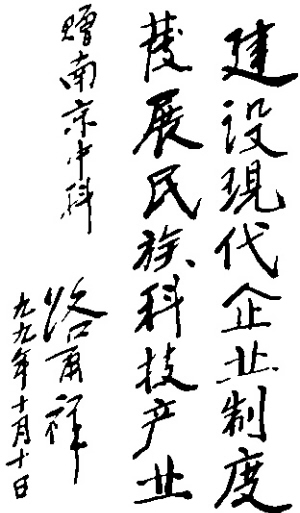 建设現代企业制度
发展民族科技产业
赠南京中科
路甬祥
九九年十月十日